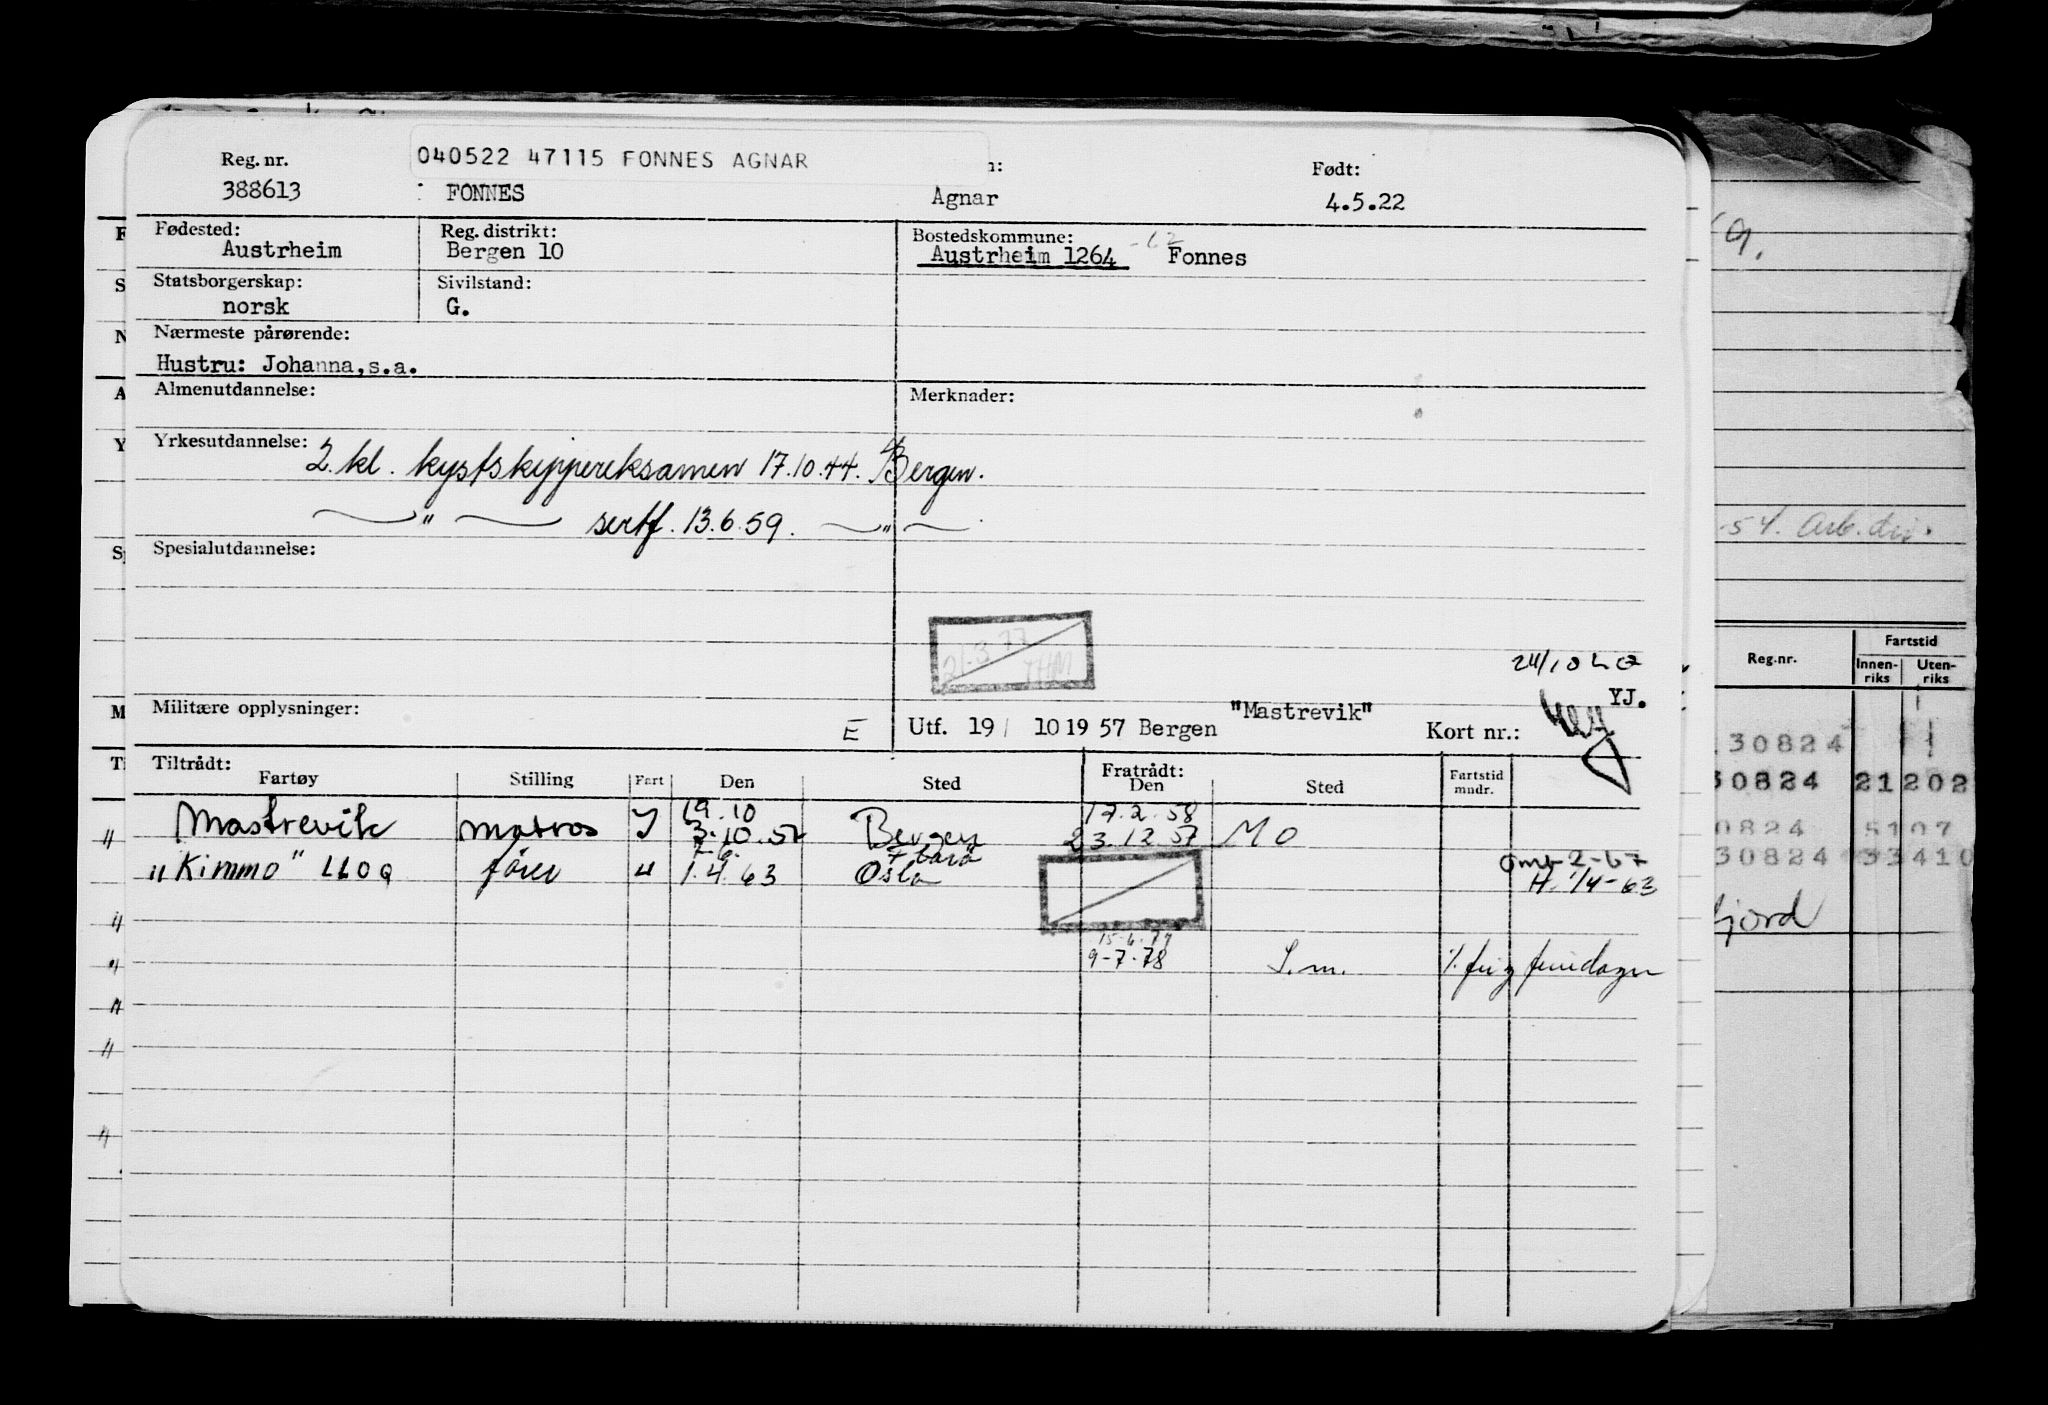 040522 47115 FONNES AGNAR
Reg. nr. Født:
388613 FONNES Agnar 4.5.22
Fødested: Reg. distrikt: Bostedskommune:
Austrheim Bergen 10 Austrheim 1264 Fonnes
Statsborgerskap: Sivilstand:
norsk G.
Nærmeste pårørende:
Hustru: Johanna, s.a.
Almenutdannelse: Merknader:
Yrkesutdannelse: 2. kl. kystskippereksamen 17.10.44. Bergen.
" sertf. 13.6.59. "
Spesialutdannelse:
21-3 77
THM
YJ.
Militære opplysninger: E Utf. 19/ 10 19 57 Bergen "Mastrevik" Kort nr.:
Tiltrådt: Fratrådt:
Fartøy Stilling Fart Den Sted Den Sted Fartstid mndr.
19.10 17.2.58
Mastrevik matros 3.10.57 Bergen 23.12.57 MO
"Kimmo" LLOQ fører " 1.4.63 Oslo
H. 1/4-63
9-7-78 S.m.
54. Arb.dir.
Reg.nr. Fartstid
Innen-riks Uten-riks
30824
30824 21 202
0824 5107
30824 33410
fjord